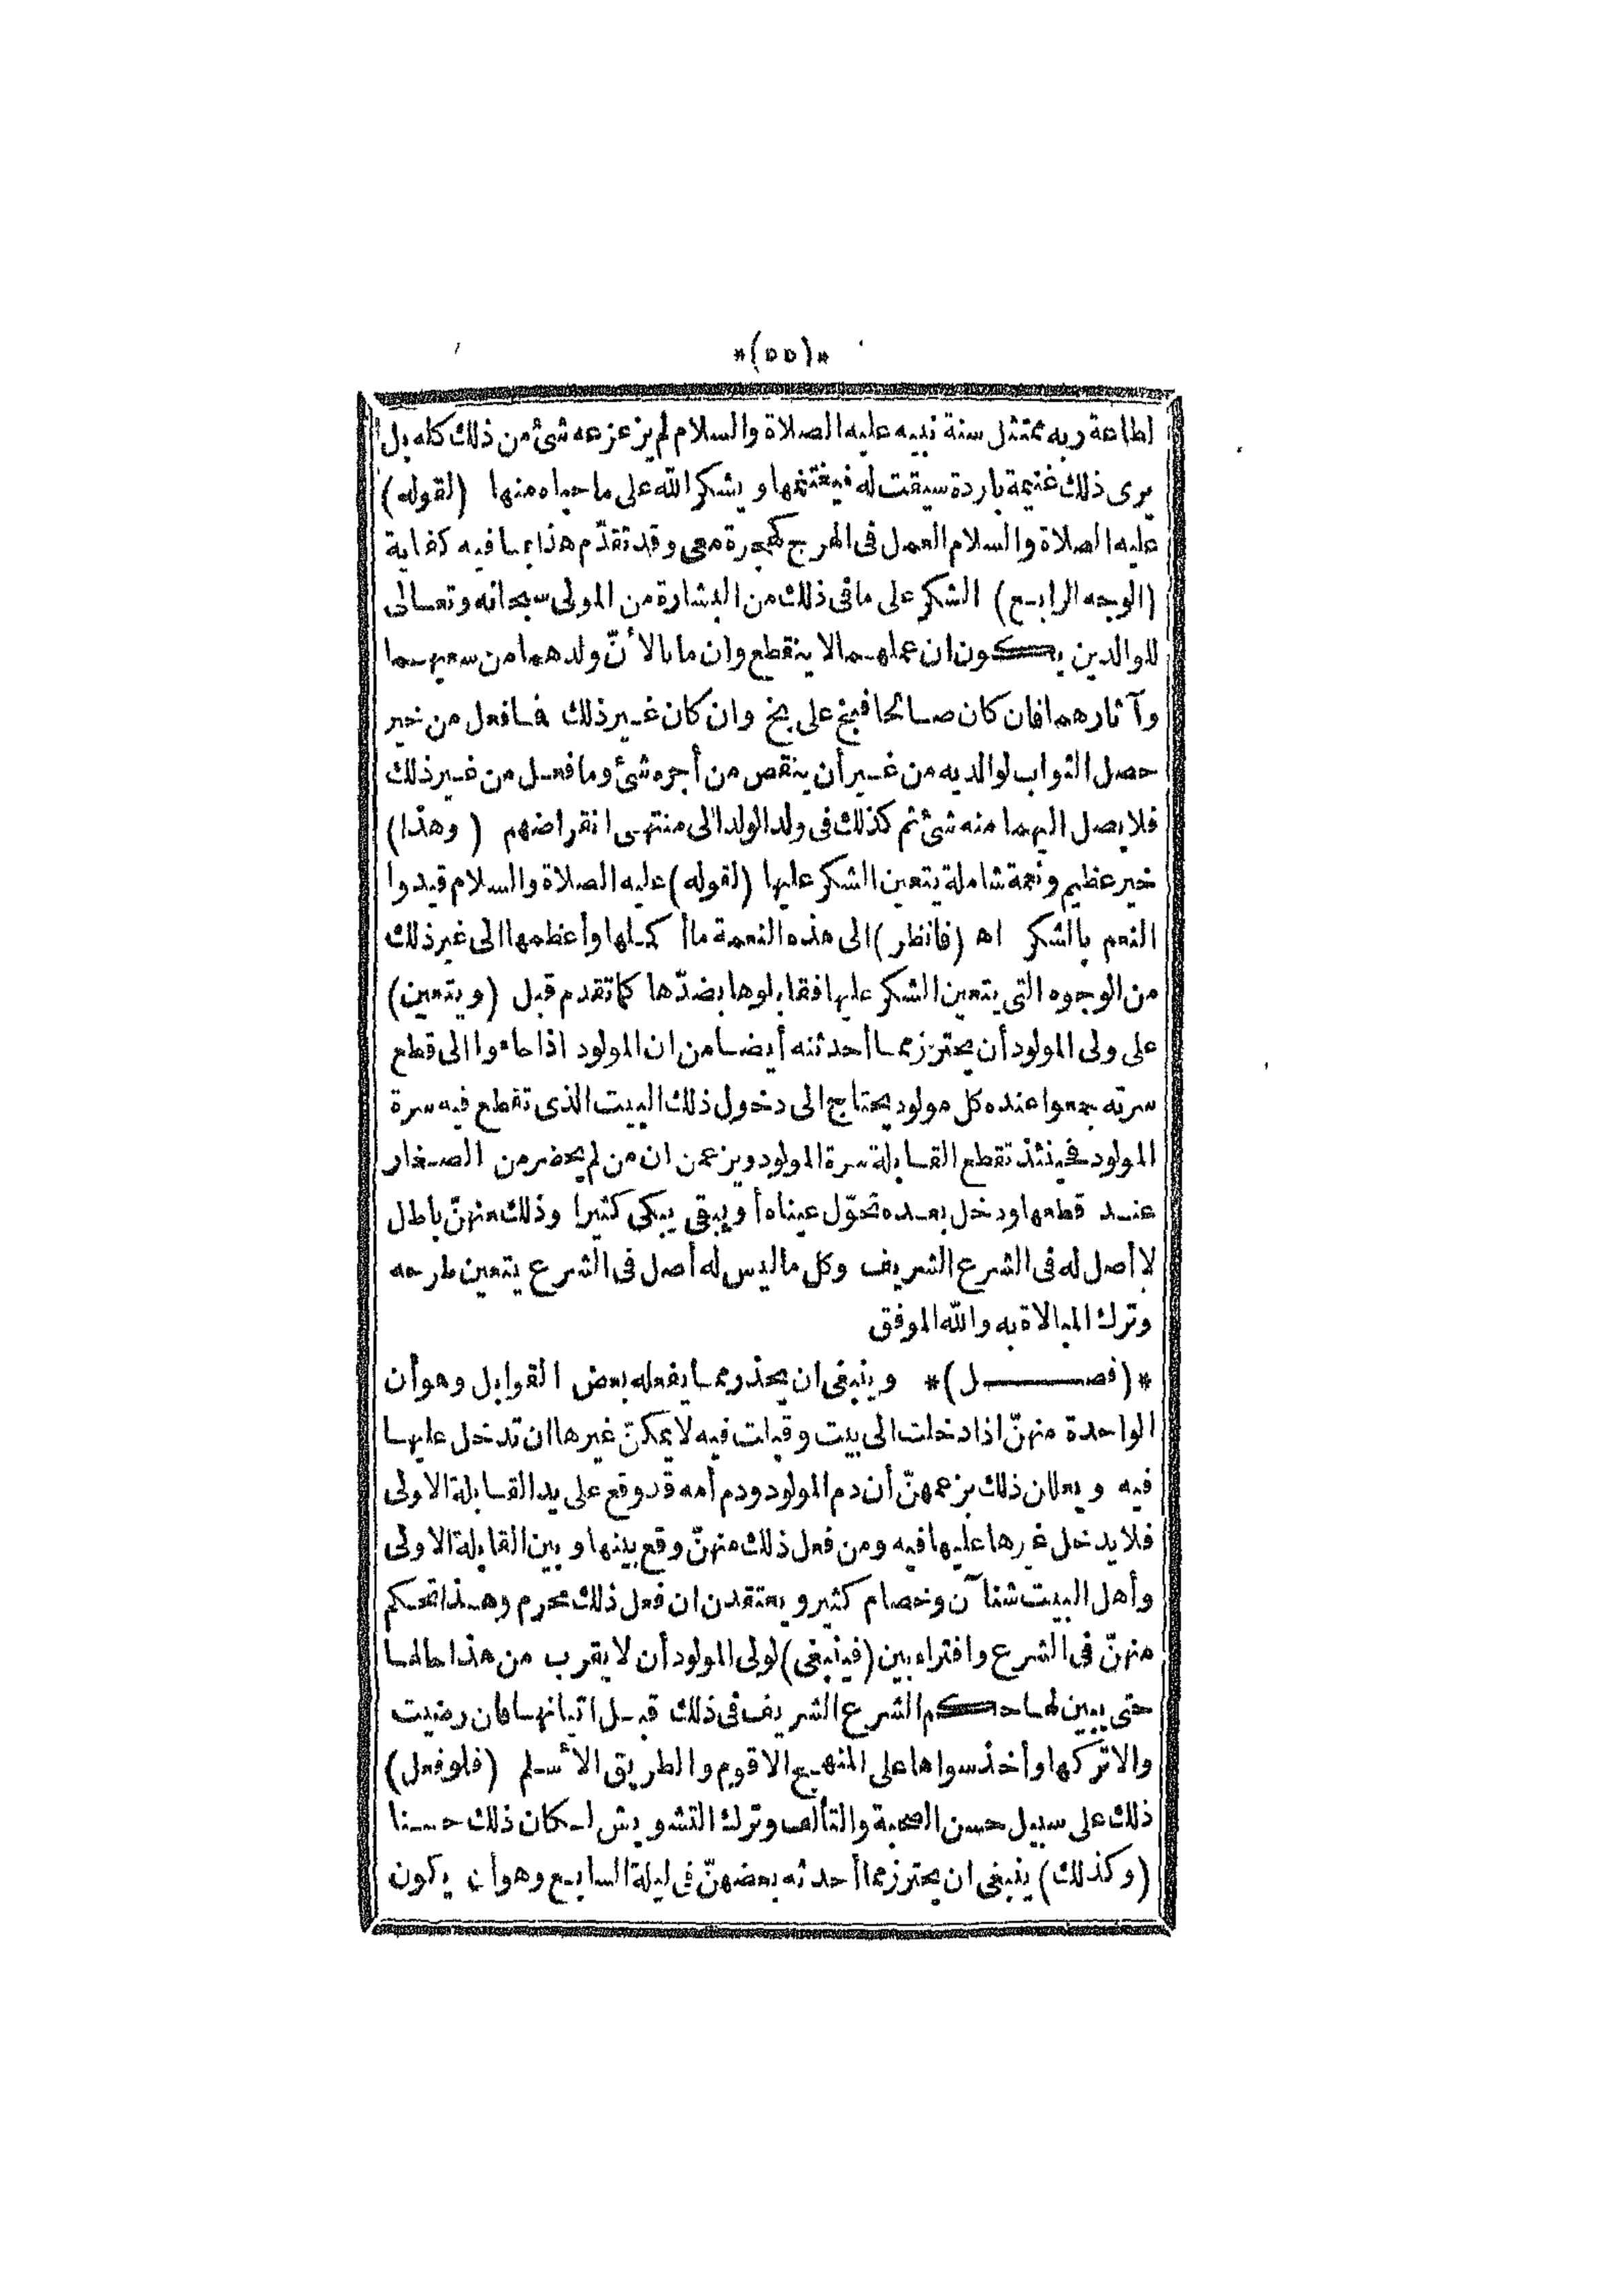 *(٥٥)*
لطاعة ربه ممتثل سنة نبيه عليه الصلاة والسلام لم يزعزعه شئ من ذلك كله بل
يرى ذلك غنيمة باردة سيقت له فيغتنمها ويشكر الله على ما حباه منها (لقوله)
عليه الصلاة والسلام العمل فى الهرج كهجرة معى وقد تقدّم هذا بما فيه كفاية
(الوجه الرابع) الشكر على ما فى ذلك من البشارة من المولى سبحانه وتعالى
للوالدين بكون ان عملهما لا ينقطع وان ماتا لأنّ ولدهما من سعيهما
وآثارهما فان كان صالحا فبخ على بخ وان كان غير ذلك فما فعل من خير
حصل الثواب لوالديه من غير أن ينقص من أجره شئ وما فعل من غير ذلك
فلا يصل اليهما منه شئ ثم كذلك فى ولد الولد الى منتهى انقراضهم (وهذا)
خير عظيم ونعمة شاملة يتعين الشكر عليها (لقوله) عليه الصلاة والسلام قيدوا
النعم بالشكر اه (فانظر) الى هذه النعمة ما أكملها وأعظمها الى غير ذلك
من الوجوه التى يتعين الشكر عليها فقابلوها بضدّها كما تقدم قبل (ويتعين)
على ولى المولود أن يحترز مما أحدثنه أيضا من ان المولود اذا جاءوا الى قطع
سرته جمعوا عنده كل مولود يحتاج الى دخول ذلك البيت الذى تقطع فيه سرة
المولود فحينئذ تقطع القابلة سرة المولود ويزعمن ان من لم يحضر من الصغار
عند قطعها ودخل بعده تحوّل عيناه أو يبقى يبكى كثيرا وذلك منهنّ باطل
لا أصل له فى الشرع الشريف وكل ما ليس له أصل فى الشرع يتعين طرحه
وترك المبالاة به والله الموفق
*(فصل)* وينبغى ان يحذر مما يفعله بعض القوابل وهو أن
الواحدة منهنّ اذا دخلت الى بيت وقبلت فيه لا يمكنّ غيرها ان تدخل عليها
فيه ويعللن ذلك بزعمهنّ أن دم المولود ودم أمه قد وقع على يد القابلة الاولى
فلا يدخل غيرها عليها فيه ومن فعل ذلك منهنّ وقع بينها وبين القابلة الاولى
وأهل البيت شنآن وخصام كثير ويعتقدن ان فعل ذلك محرم وهذا تحكم
منهنّ فى الشرع وافتراء بين (فينبغى) لولى المولود أن لا يقرب من هذا حالها
حتى يبين لها حكم الشرع الشريف فى ذلك قبل اتيانها فان رضيت
والا تركها وأخذ سواها على المنهج الاقوم والطريق الأسلم (فلو فعل)
ذلك على سبيل حسن الصحبة والتألف وترك التشويش لكان ذلك حسنا
(وكذلك) ينبغى ان يحترز مما أحدثه بعضهنّ فى ليلة السابع وهو أن يكون